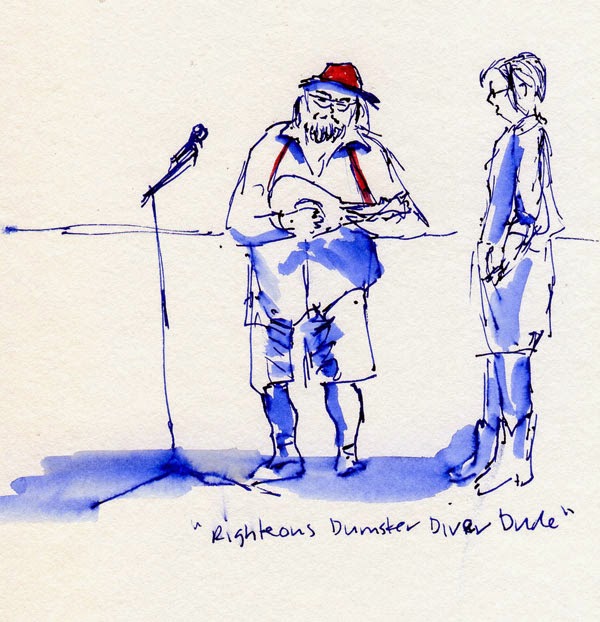 "Righteous Dumster Diver Dude"